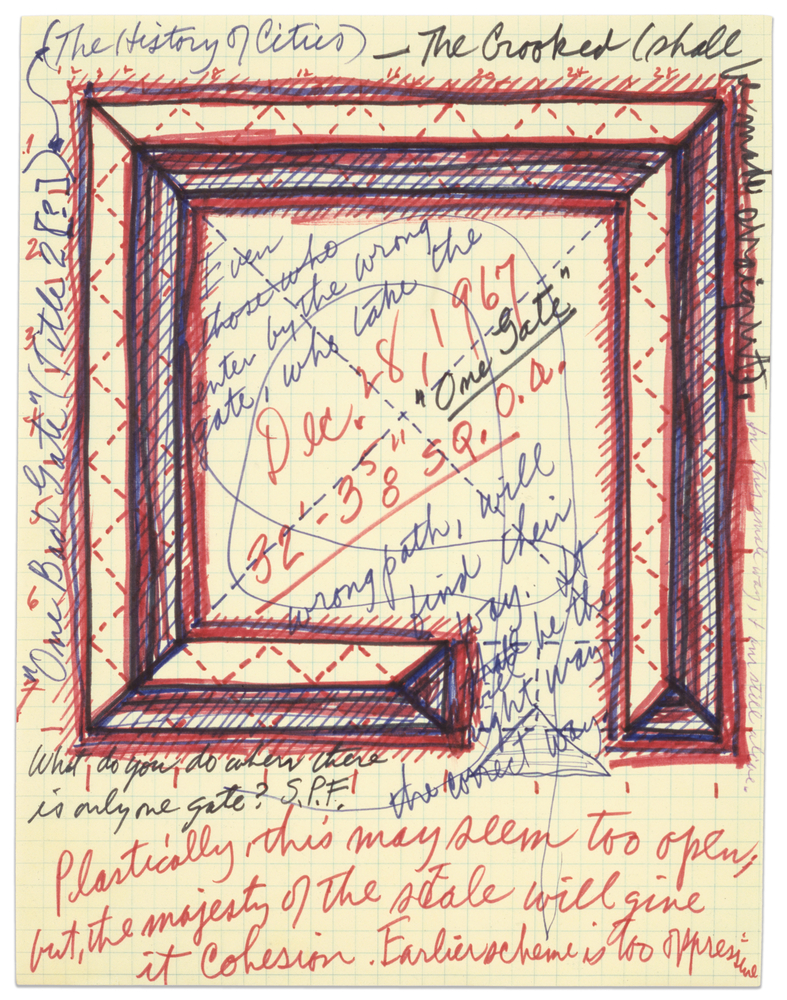 (The History of Cities) — The Crooked (shall
be made straight).
8 12 16 20 24 28
"One Bad Gate" (Title 2 [?])
Even
those who
enter by the wrong
gate, who take the
wrong path, will
find their
way. It
will be the
right way;
the correct way.
Dec. 28, 1967
"One Gate"
32'-3⅝" SQ. O.A.
In this small way, I am still alive.
What do you do when there
is only one gate? S.P.F.
Plastically, this may seem too open;
but, the majesty of the scale will give
it cohesion. Earlier scheme is too oppressive